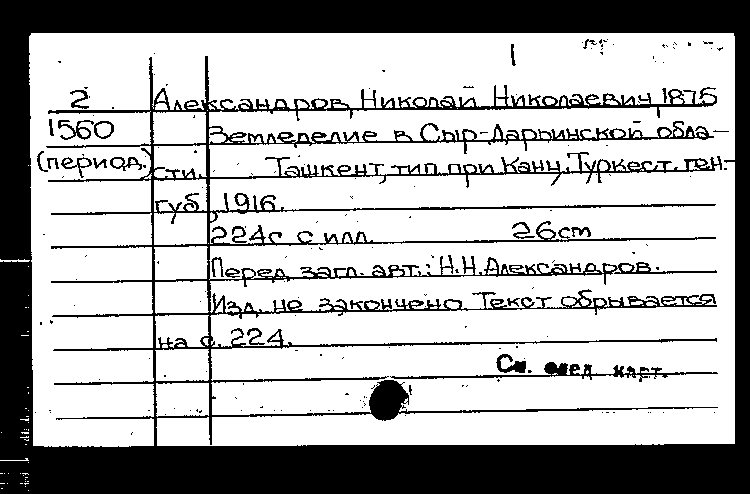 1
2 Александров, Николай Николаевич, 1875
1560 Земледелие в Сыр-Дарьинской обла-
(период.) сти. Ташкент, тип при Канц. Туркест. ген.-
губ., 1916.
224с с илл. 26cm
Перед загл. авт.: Н.Н.Александров.
Изд. не закончено. Текст обрывается
на с. 224.
См. след карт.